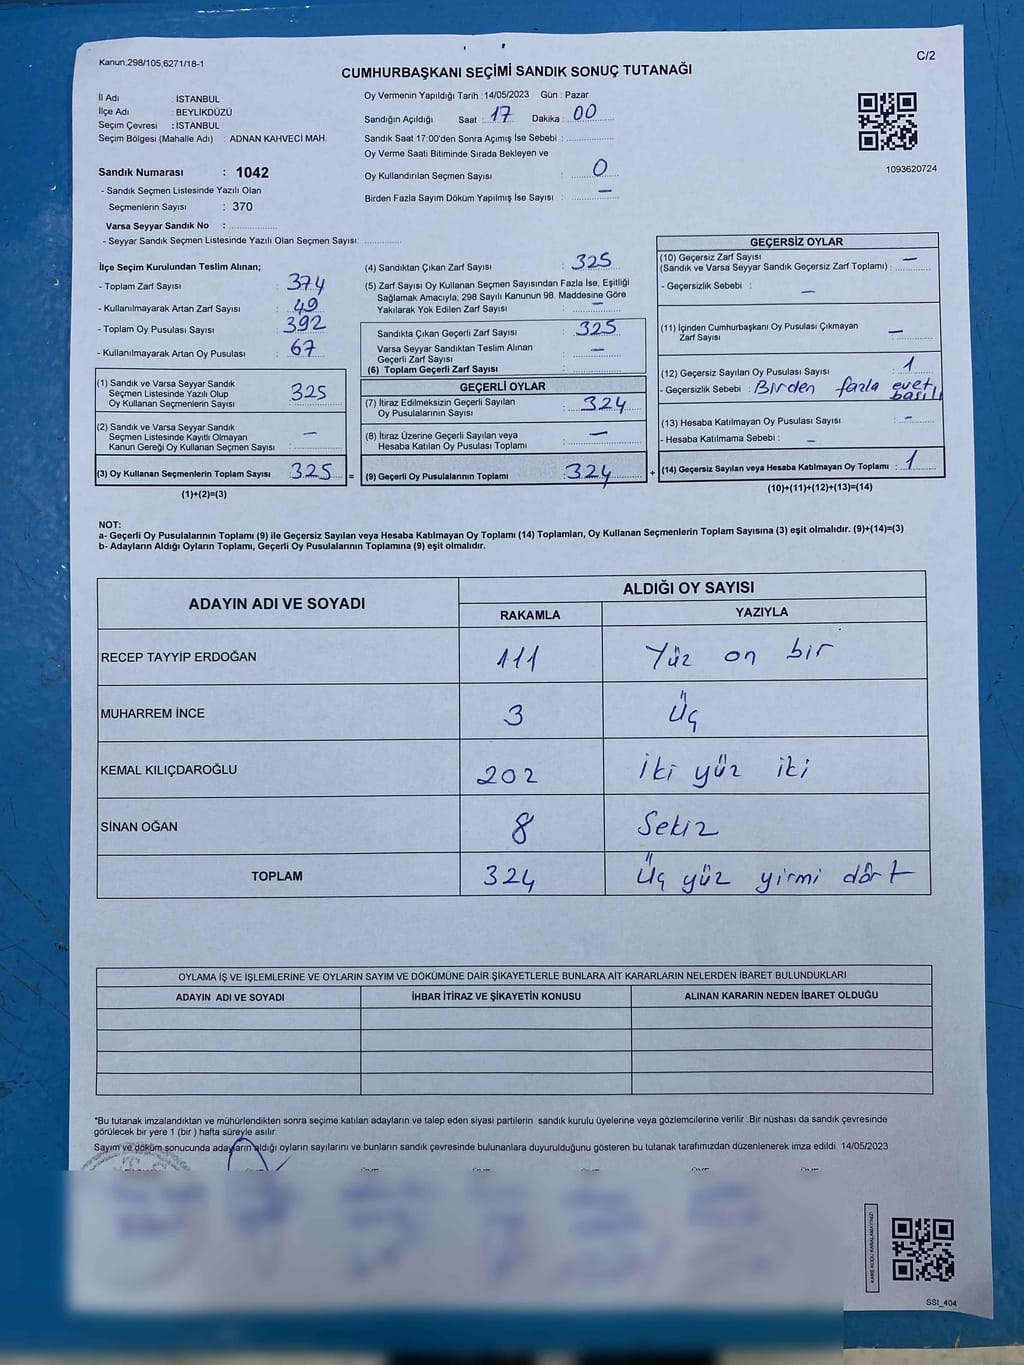 Kanun;298/105,6271/18-1
C/2
CUMHURBAŞKANI SEÇİMİ SANDIK SONUÇ TUTANAĞI
İl Adı : İSTANBUL
İlçe Adı : BEYLİKDÜZÜ
Seçim Çevresi : İSTANBUL
Seçim Bölgesi (Mahalle Adı) : ADNAN KAHVECİ MAH.
Oy Vermenin Yapıldığı Tarih :14/05/2023 Gün : Pazar
Sandığın Açıldığı Saat : 17 Dakika : 00
Sandık Saat 17:00'den Sonra Açımış İse Sebebi :
Oy Verme Saati Bitiminde Sırada Bekleyen ve
Oy Kullandırılan Seçmen Sayısı : 0
Birden Fazla Sayım Döküm Yapılmış İse Sayısı : —
1093620724
Sandık Numarası : 1042
- Sandık Seçmen Listesinde Yazılı Olan
Seçmenlerin Sayısı : 370
Varsa Seyyar Sandık No :
- Seyyar Sandık Seçmen Listesinde Yazılı Olan Seçmen Sayısı:
İlçe Seçim Kurulundan Teslim Alınan;
- Toplam Zarf Sayısı : 374
- Kullanılmayarak Artan Zarf Sayısı : 49
- Toplam Oy Pusulası Sayısı : 392
- Kullanılmayarak Artan Oy Pusulası : 67
(1) Sandık ve Varsa Seyyar Sandık
Seçmen Listesinde Yazılı Olup
Oy Kullanan Seçmenlerin Sayısı : 325
(2) Sandık ve Varsa Seyyar Sandık
Seçmen Listesinde Kayıtlı Olmayan
Kanun Gereği Oy Kullanan Seçmen Sayısı : —
(3) Oy Kullanan Seçmenlerin Toplam Sayısı : 325 =
(1)+(2)=(3)
(4) Sandıktan Çıkan Zarf Sayısı : 325
(5) Zarf Sayısı Oy Kullanan Seçmen Sayısından Fazla İse, Eşitliği
Sağlamak Amacıyla; 298 Sayılı Kanunun 98. Maddesine Göre
Yakılarak Yok Edilen Zarf Sayısı : —
Sandıkta Çıkan Geçerli Zarf Sayısı : 325
Varsa Seyyar Sandıktan Teslim Alınan
Geçerli Zarf Sayısı : —
(6) Toplam Geçerli Zarf Sayısı :
GEÇERLİ OYLAR
(7) İtiraz Edilmeksizin Geçerli Sayılan
Oy Pusulalarının Sayısı : 324
(8) İtiraz Üzerine Geçerli Sayılan veya
Hesaba Katılan Oy Pusulası Toplamı : —
(9) Geçerli Oy Pusulalarının Toplamı : 324 +
GEÇERSİZ OYLAR
(10) Geçersiz Zarf Sayısı
(Sandık ve Varsa Seyyar Sandık Geçersiz Zarf Toplamı) : —
- Geçersizlik Sebebi : —
(11) İçinden Cumhurbaşkanı Oy Pusulası Çıkmayan
Zarf Sayısı : —
(12) Geçersiz Sayılan Oy Pusulası Sayısı : 1
- Geçersizlik Sebebi : Birden fazla evet
basılı
(13) Hesaba Katılmayan Oy Pusulası Sayısı : —
- Hesaba Katılmama Sebebi : —
(14) Geçersiz Sayılan veya Hesaba Katılmayan Oy Toplamı : 1
(10)+(11)+(12)+(13)=(14)
NOT:
a- Geçerli Oy Pusulalarının Toplamı (9) ile Geçersiz Sayılan veya Hesaba Katılmayan Oy Toplamı (14) Toplamları, Oy Kullanan Seçmenlerin Toplam Sayısına (3) eşit olmalıdır. (9)+(14)=(3)
b- Adayların Aldığı Oyların Toplamı, Geçerli Oy Pusulalarının Toplamına (9) eşit olmalıdır.
ADAYIN ADI VE SOYADI
ALDIĞI OY SAYISI
RAKAMLA YAZIYLA
RECEP TAYYİP ERDOĞAN 111 Yüz on bir
MUHARREM İNCE 3 Üç
KEMAL KILIÇDAROĞLU 202 İki yüz iki
SİNAN OĞAN 8 Sekiz
TOPLAM 324 Üç yüz yirmi dört
OYLAMA İŞ VE İŞLEMLERİNE VE OYLARIN SAYIM VE DÖKÜMÜNE DAİR ŞİKAYETLERLE BUNLARA AİT KARARLARIN NELERDEN İBARET BULUNDUKLARI
ADAYIN ADI VE SOYADI İHBAR İTİRAZ VE ŞİKAYETİN KONUSU ALINAN KARARIN NEDEN İBARET OLDUĞU
*Bu tutanak imzalandıktan ve mühürlendikten sonra seçime katılan adayların ve talep eden siyasi partilerin sandık kurulu üyelerine veya gözlemcilerine verilir .Bir nüshası da sandık çevresinde
görülecek bir yere 1 (bir ) hafta süreyle asılır.
Sayım ve döküm sonucunda adayların aldığı oyların sayılarını ve bunların sandık çevresinde bulunanlara duyurulduğunu gösteren bu tutanak tarafımızdan düzenlenerek imza edildi. 14/05/2023
KARE KODU KARALAMAYINIZ!
SSI_404